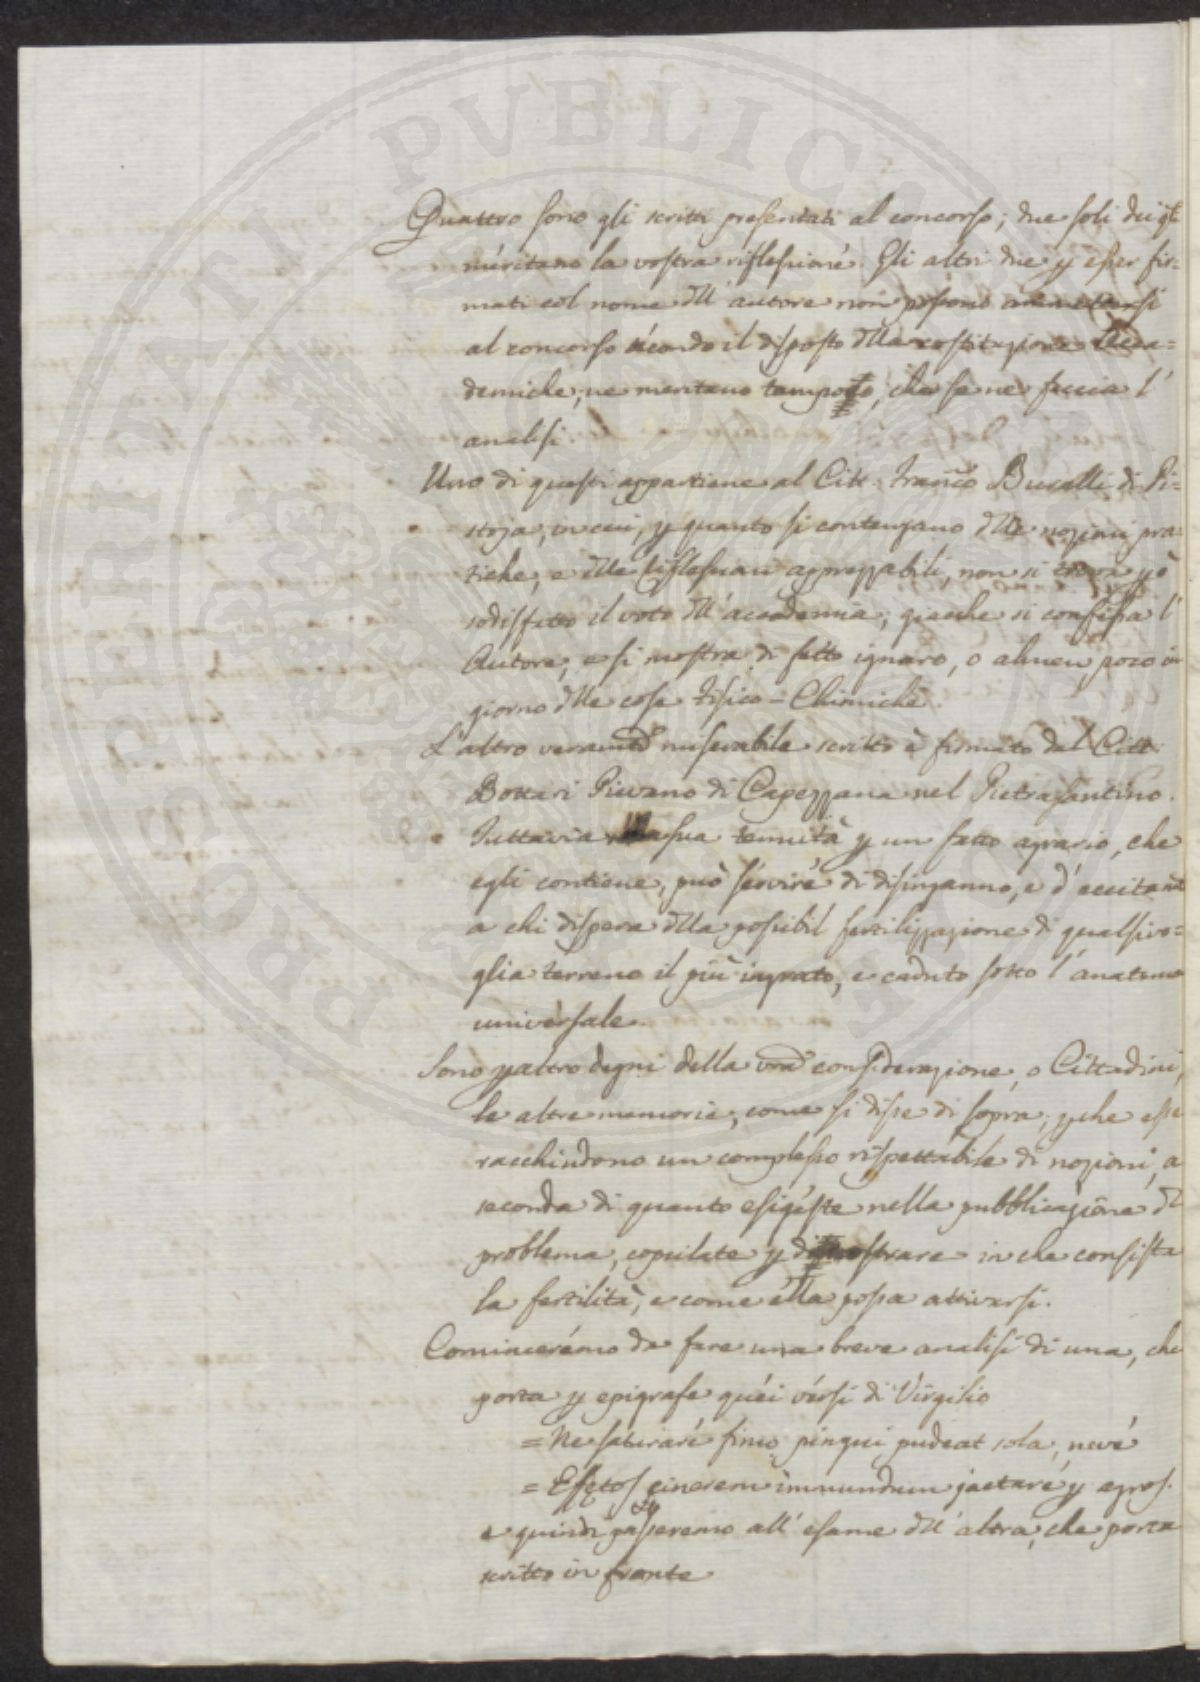 Quattro sono gli scritti presentati al concorso; due soli dei qli
meritano la vostra riflessione. Gli altri due p esser fir=
mati col nome dll' autore non possono ammettersi
al concorso secondo il disposto dlle costituzioni Acca=
demiche; ne meritano tampoco, che se ne faccia l'
analisi.
Uno di questi appartiene al Citt. Franco Bucalli di Pi=
stoja, in cui, p quanto si contengano dlle nozioni pra=
tiche, e dlle riflessioni apprezzabili, non si trova pò
sodisfatto il voto dll' accademia; giacche si confessa l'
Autore, e si mostra di fatto ignaro, o almen poco in
giorno dlle cose Fisico=Chimiche.
L'altro veramte miserabile scritto è firmato dal Citt.
Bottari Pievano di Capezzana nel Pietrasantino.
Tuttavia la sua tenuità p un fatto agrario, che
egli contiene, può servire di disinganno, e d' eccitamto
a chi dispera dlla possibil fertilizzazione di qualsivo=
glia terreno il più ingrato, e caduto sotto l' anatema
universale.
Sono paltro degni della vra considerazione, o Cittadini,
le altre memorie, come si disse di sopra; pche esse
racchiudono un complesso rispettabile di nozioni, a
seconda di quanto esigeste nella pubblicazione dl
problema, copulate p dimostrare in che consista
la fertilità, e come ella possa attivarsi.
Cominceremo da fare una breve analisi di una, che
porta p epigrafe quei versi di Virgilio
= Ne saturare fimo pingui pudeat sola, neve
= Effetos cinerem immundum jactare p agros.
e quindi passeremo all' esame dll' altra, che porta
scritto in fronte
PROSPERITATI PUBLICAE